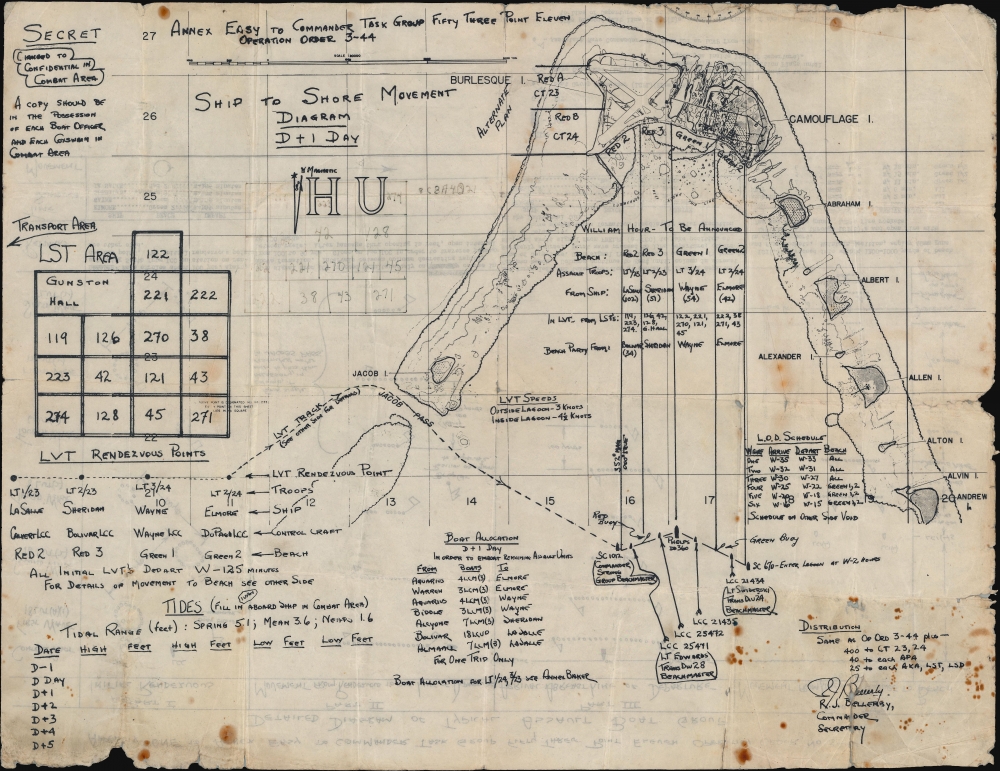 SECRET
(CHANGED TO
CONFIDENTIAL IN
COMBAT AREA)
A COPY SHOULD BE
IN THE POSSESSION
OF EACH BOAT OFFICER
AND EACH COXSWAIN IN
COMBAT AREA
27
ANNEX EASY TO COMMANDER TASK GROUP FIFTY THREE POINT ELEVEN
OPERATION ORDER 3-44
26
SHIP TO SHORE MOVEMENT
DIAGRAM
D+1 DAY
25
MAGNETIC
HU
BURLESQUE I.
ALTERNATE
PLAN
RED A
CT 23
RED B
CT 24
RED 2
RED 3
GREEN 1
CAMOUFLAGE I.
ABRAHAM I.
ALBERT I.
ALEXANDER I.
ALLEN I.
ALTON I.
ALVIN I.
ANDREW
JACOB I.
JACOB PASS
TRANSPORT AREA
LST AREA
122
24
GUNSTON
HALL
221 222
119 126 270 38
23
223 42 121 43
274 128 45 271
22
LVT RENDEZVOUS POINTS
LVT TRACK
(SEE OTHER SIDE FOR DETAILS)
WILLIAM HOUR - TO BE ANNOUNCED
BEACH: RED 2 RED 3 GREEN 1 GREEN 2
ASSAULT TROOPS: LT 1/23 LT 2/23 LT 3/24 LT 2/24
FROM SHIP: LASALLE SHERIDAN WAYNE ELMORE
(102) (51) (54) (42)
IN LVT. FROM LSTs: 119, 126, 42, 122, 221, 222, 38
223, 128, 270, 121, 271, 43
274 G. HALL 45
BEACH PARTY FROM: BOLIVAR SHERIDAN WAYNE ELMORE
(34)
LVT SPEEDS
OUTSIDE LAGOON - 3 KNOTS
INSIDE LAGOON - 4½ KNOTS
LVT RENDEZVOUS POINT
LT 1/23 LT 2/23 LT 3/24 LT 2/24 TROOPS
21
10 11 12 13 14 15 16 17 18 19 20
LASALLE SHERIDAN WAYNE ELMORE SHIP
CALVERT LCC BOLIVAR LCC WAYNE LCC DUPAGE LCC CONTROL CRAFT
RED 2 RED 3 GREEN 1 GREEN 2 BEACH
ALL INITIAL LVT'S DEPART W-125 MINUTES
FOR DETAILS OF MOVEMENT TO BEACH SEE OTHER SIDE
TIDES (FILL IN ABOARD SHIP IN COMBAT AREA)
TIDAL RANGE (FEET): SPRING 5.1; MEAN 3.6; NEAPS 1.6
DATE HIGH FEET HIGH FEET LOW FEET LOW FEET
D-1
D DAY
D+1
D+2
D+3
D+4
D+5
BOAT ALLOCATION
D+1 DAY
IN ORDER TO EMBARK REMAINING ASSAULT UNITS
FROM BOATS TO
AQUARIUS 4LCM(3) ELMORE
WARREN 3LCM(3) ELMORE
AQUARIUS 4LCM(3) WAYNE
BIDDLE 3LCM(3) WAYNE
ALCYONE 7LCM(3) SHERIDAN
BOLIVAR 18LCVP LASALLE
ALMAACK 7LCM(3) LASALLE
FOR ONE TRIP ONLY
BOAT ALLOCATION FOR LT 1/24, 3/23 SEE ANNEX BAKER
L.O.D. SCHEDULE
WAVE ARRIVE DEPART BEACH
ONE W-35 W-33 ALL
TWO W-32 W-31 ALL
THREE W-30 W-27 ALL
FOUR W-25 W-22 GREEN 1,2
FIVE W-20 W-18 GREEN 1,2
SIX W-16 W-15 GREEN 1,2
SCHEDULE ON OTHER SIDE VOID
RED BUOY
GREEN BUOY
PHELPS
DD360
SC 1012
COMMANDER
STRONG
GROUP BEACHMASTER
SC 670 - ENTER LAGOON AT W-2 HOURS
LCC 21434
TRANS DIV 24
BEACHMASTER
LCC 21435
LCC 25472
LCC 25471
(LT EDWARDS
TRANS DIV 28
BEACHMASTER)
DISTRIBUTION
SAME AS OP ORD 3-44 PLUS—
400 TO CT 23, 24
40 TO EACH APA
25 TO EACH AKA, LST, LSD
R. J. BELLERBY,
COMMANDER
SECRETARY